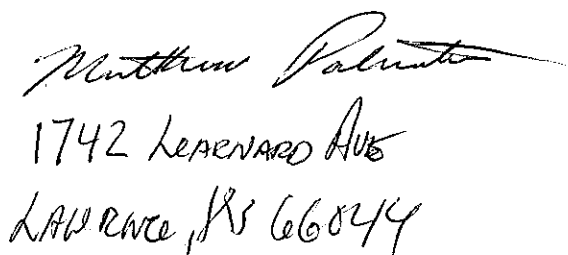 Matthew
1742 Learnard Ave
Lawrence, KS 66044